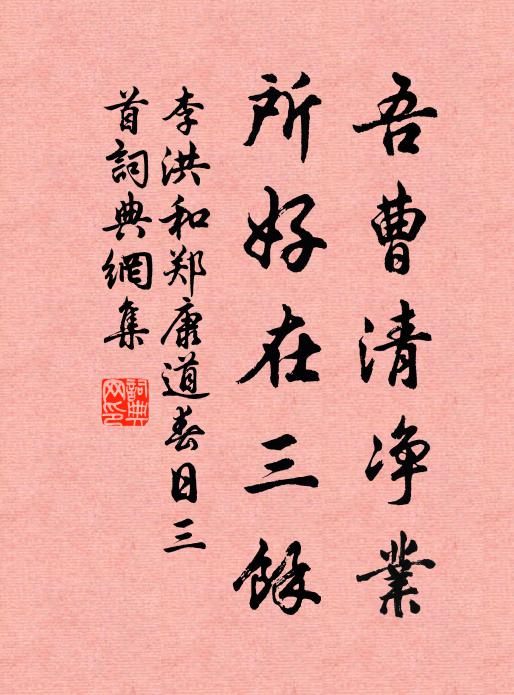 吾曹清净業
所好在三餘
李洪和郑康道春日三
首詞典網集
詞典
网印